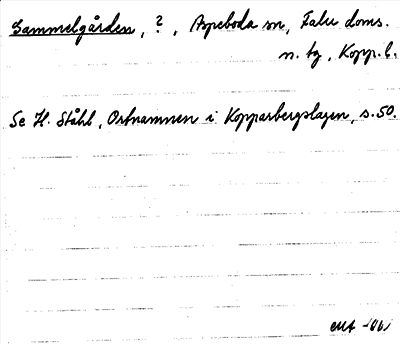 Gammelgården, ?, Aspeboda sn, Falu doms.
n. tg, Kopp. l.
Se H. Ståhl, Ortnamnen i Kopparbergslagen, s. 50.